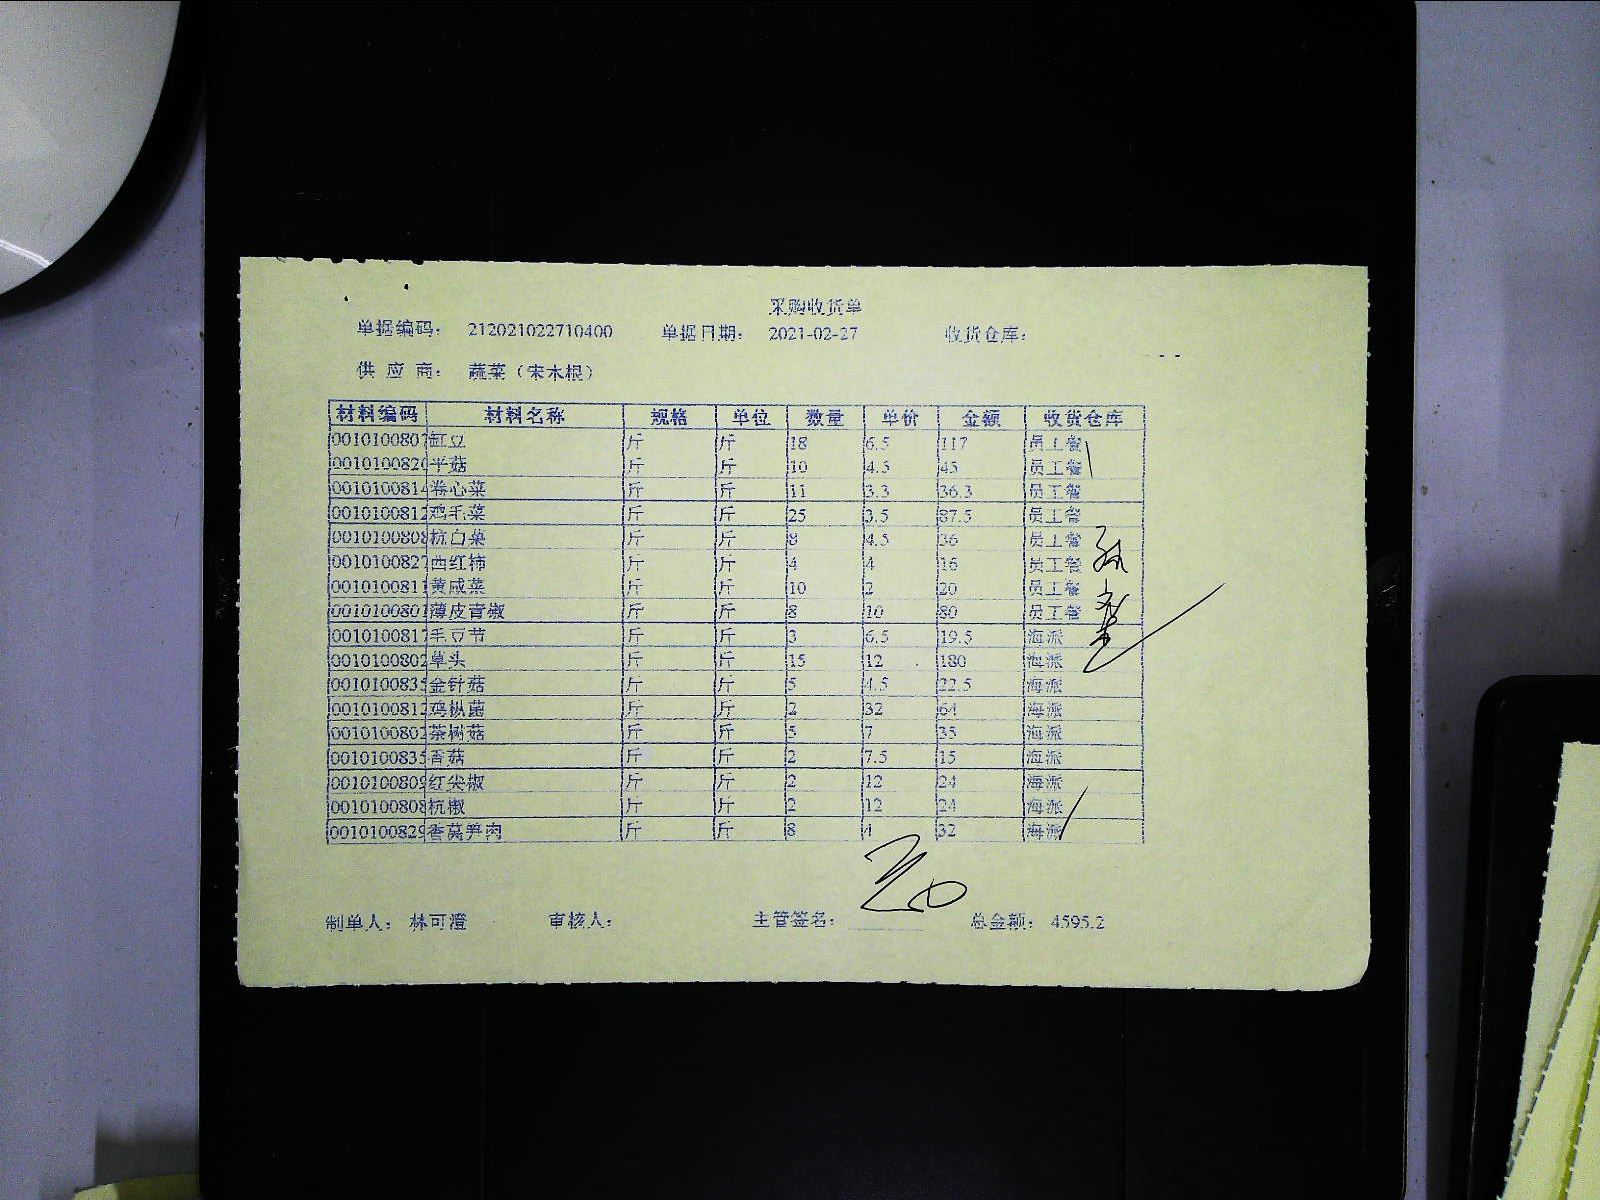 采购收货单
单据编码： 212021022710400 单据日期： 2021-02-27 收货仓库：
供 应 商： 蔬菜（宋木根）
材料编码 材料名称 规格 单位 数量 单价 金额 收货仓库
0010100807 缸豆 斤 斤 18 6.5 117 员工餐
0010100820 平菇 斤 斤 10 4.5 45 员工餐
0010100814 卷心菜 斤 斤 11 3.3 36.3 员工餐
0010100812 鸡毛菜 斤 斤 25 3.5 87.5 员工餐
0010100808 杭白菜 斤 斤 8 4.5 36 员工餐
0010100827 西红柿 斤 斤 4 4 16 员工餐
0010100811 黄咸菜 斤 斤 10 2 20 员工餐
0010100801 薄皮青椒 斤 斤 8 10 80 员工餐
0010100817 毛豆节 斤 斤 3 6.5 19.5 海派
0010100802 草头 斤 斤 15 12 180 海派
0010100835 金针菇 斤 斤 5 4.5 22.5 海派
0010100812 鸡枞菌 斤 斤 2 32 64 海派
0010100802 茶树菇 斤 斤 5 7 35 海派
0010100835 香菇 斤 斤 2 7.5 15 海派
0010100809 红尖椒 斤 斤 2 12 24 海派
0010100808 杭椒 斤 斤 2 12 24 海派
0010100829 香莴笋肉 斤 斤 8 4 32 海派
制单人： 林可澄 审核人： 主管签名： 总金额： 4595.2